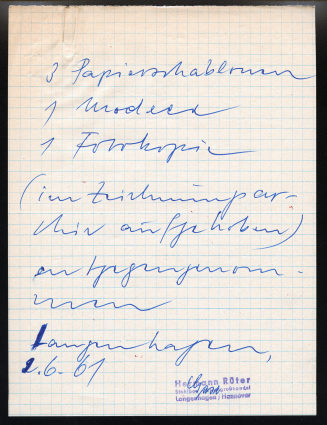 3 Papierschablonen
1 Modell
1 Fotokopie
(im Zeichnungsar-
chiv aufgehoben)
entgegengenom-
men
Langenhagen,
2.6.61
Hermann Röter
Langenhagen / Hannover